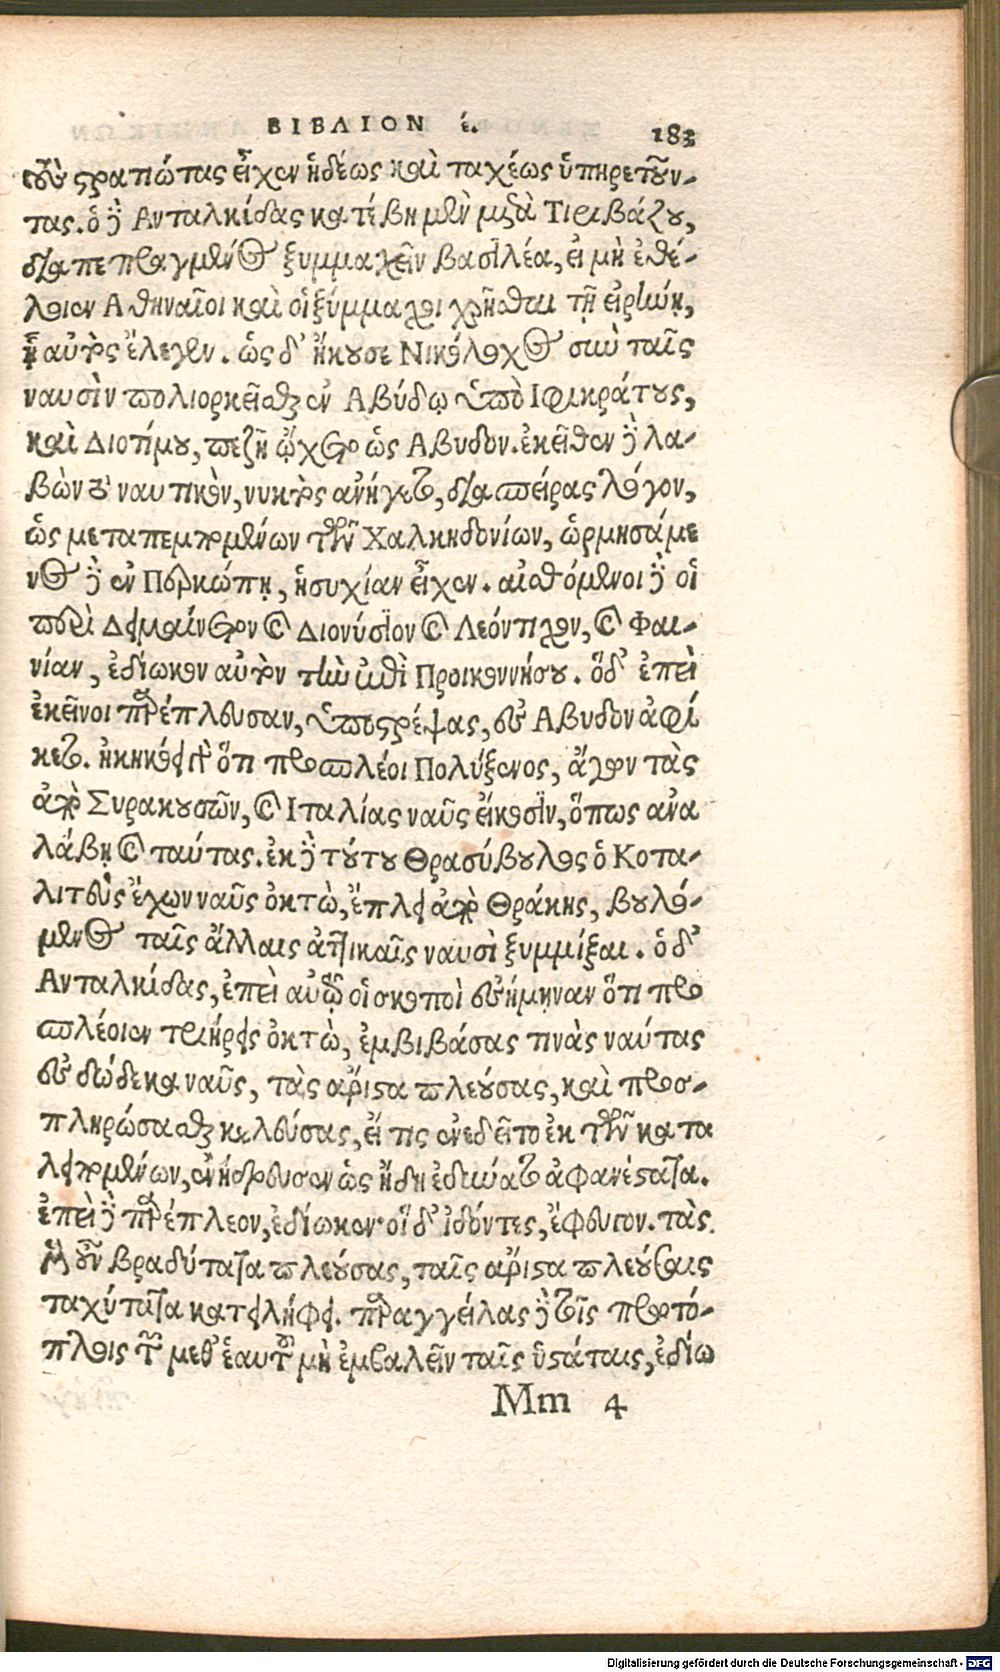 ΒΙΒΛΙΟΝ έ. 183
τοὺς στρατιώτας εἶχεν ἡδέως καὶ ταχέως ὑπηρετοῦν-
τας. ὁ δὲ Ανταλκίδας κατέβη μὲν μετὰ Τιριβάζου,
διαπεπραγμένος ξυμμαχεῖν βασιλέα, εἰ μὴ ἐθέ-
λοιεν Αθηναῖοι καὶ οἱ ξύμμαχοι χρῆσθαι τῇ εἰρήνῃ,
ᾗ αὐτὸς ἔλεγεν. ὡς δ' ἤκουσε Νικόλοχος σὺν ταῖς
ναυσὶν πολιορκεῖσθαι ἐν Αβύδῳ ὑπὸ Ιφικράτους,
καὶ Διοτίμου, πεζῇ ᾤχετο ὡς Αβυδον. ἐκεῖθεν δὲ λα-
βὼν τὸ ναυτικὸν, νυκτὸς ἀνήγετο, διασπείρας λόγον,
ὡς μεταπεμπομένων τῶν Χαλκηδονίων, ὡρμησάμε
νος δὲ ἐν Περκώπῃ, ἡσυχίαν εἶχεν. αἰσθόμενοι δὲ οἱ
περὶ Δημαίνετον καὶ Διονύσϊον καὶ Λεόντιχον, καὶ Φαι-
νίαν, ἐδίωκον αὐτὸν τὴν ἐπὶ Προικοννήσου. ὅδ' ἐπεὶ
ἐκεῖνοι παρέπλευσαν, ὑποστρέψας, εἰς Αβυδον ἀφί
κετο. ἠκηκόει γὰρ ὅτι προσπλέοι Πολύξενος, ἄγων τὰς
ἀπὸ Συρακουσῶν, καὶ Ιταλίας ναῦς εἴκοσϊν, ὅπως ἀνα
λάβῃ καὶ ταύτας. ἐκ δὲ τούτου Θρασύβουλος ὁ Κοπα-
λιτεὺς ἔχων ναῦς ὀκτὼ, ἔπλει ἀπὸ Θράκης, βουλό-
μενος ταῖς ἄλλαις ἀττικαῖς ναυσὶ ξυμμίξαι. ὁ δ'
Ανταλκίδας, ἐπεὶ αὐτῷ οἱ σκοποὶ ἐσήμηναν ὅτι προσ
πλέοιεν τριήρεις ὀκτὼ, ἐμβιβάσας τινὰς ναύτας
εἰς δώδεκα ναῦς, τὰς ἄριστα πλεούσας, καὶ προσ-
πληρώσασθαι κελεύσας, εἴ τις ἐνεδεῖτο ἐκ τῶν κατα
λειπομένων, ἐνήδρευσεν ὡς ἤδη ἐδύνατο ἀφανέστατα.
ἐπεὶ δὲ παρέπλεον, ἐδίωκεν· οἵ δ' ἰδόντες, ἔφευγον. τὰς
μὲν οὖν βραδύτατα πλεούσας, ταῖς ἄριστα πλεούσαις
ταχύτατα κατειλήφει. παραγγείλας δὲ τοῖς πρωτό-
πλοις τῶν μεθ' ἑαυτοῦ μὴ ἐμβαλεῖν ταῖς ὑστάταις, ἐδίω
Mm 4
Digitalisierung gefördert durch die Deutsche Forschungsgemeinschaft - DFG